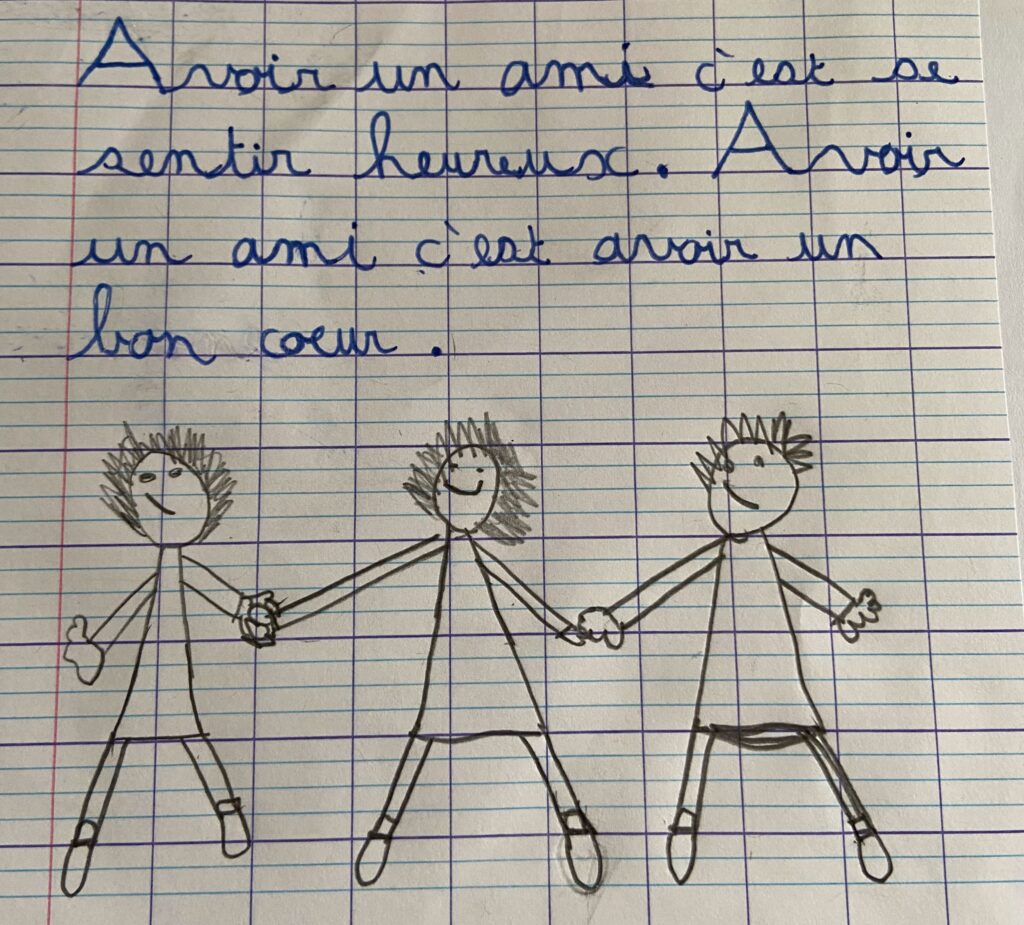 Avoir un ami c'est se
sentir heureux. Avoir
un ami c'est avoir un
bon coeur.